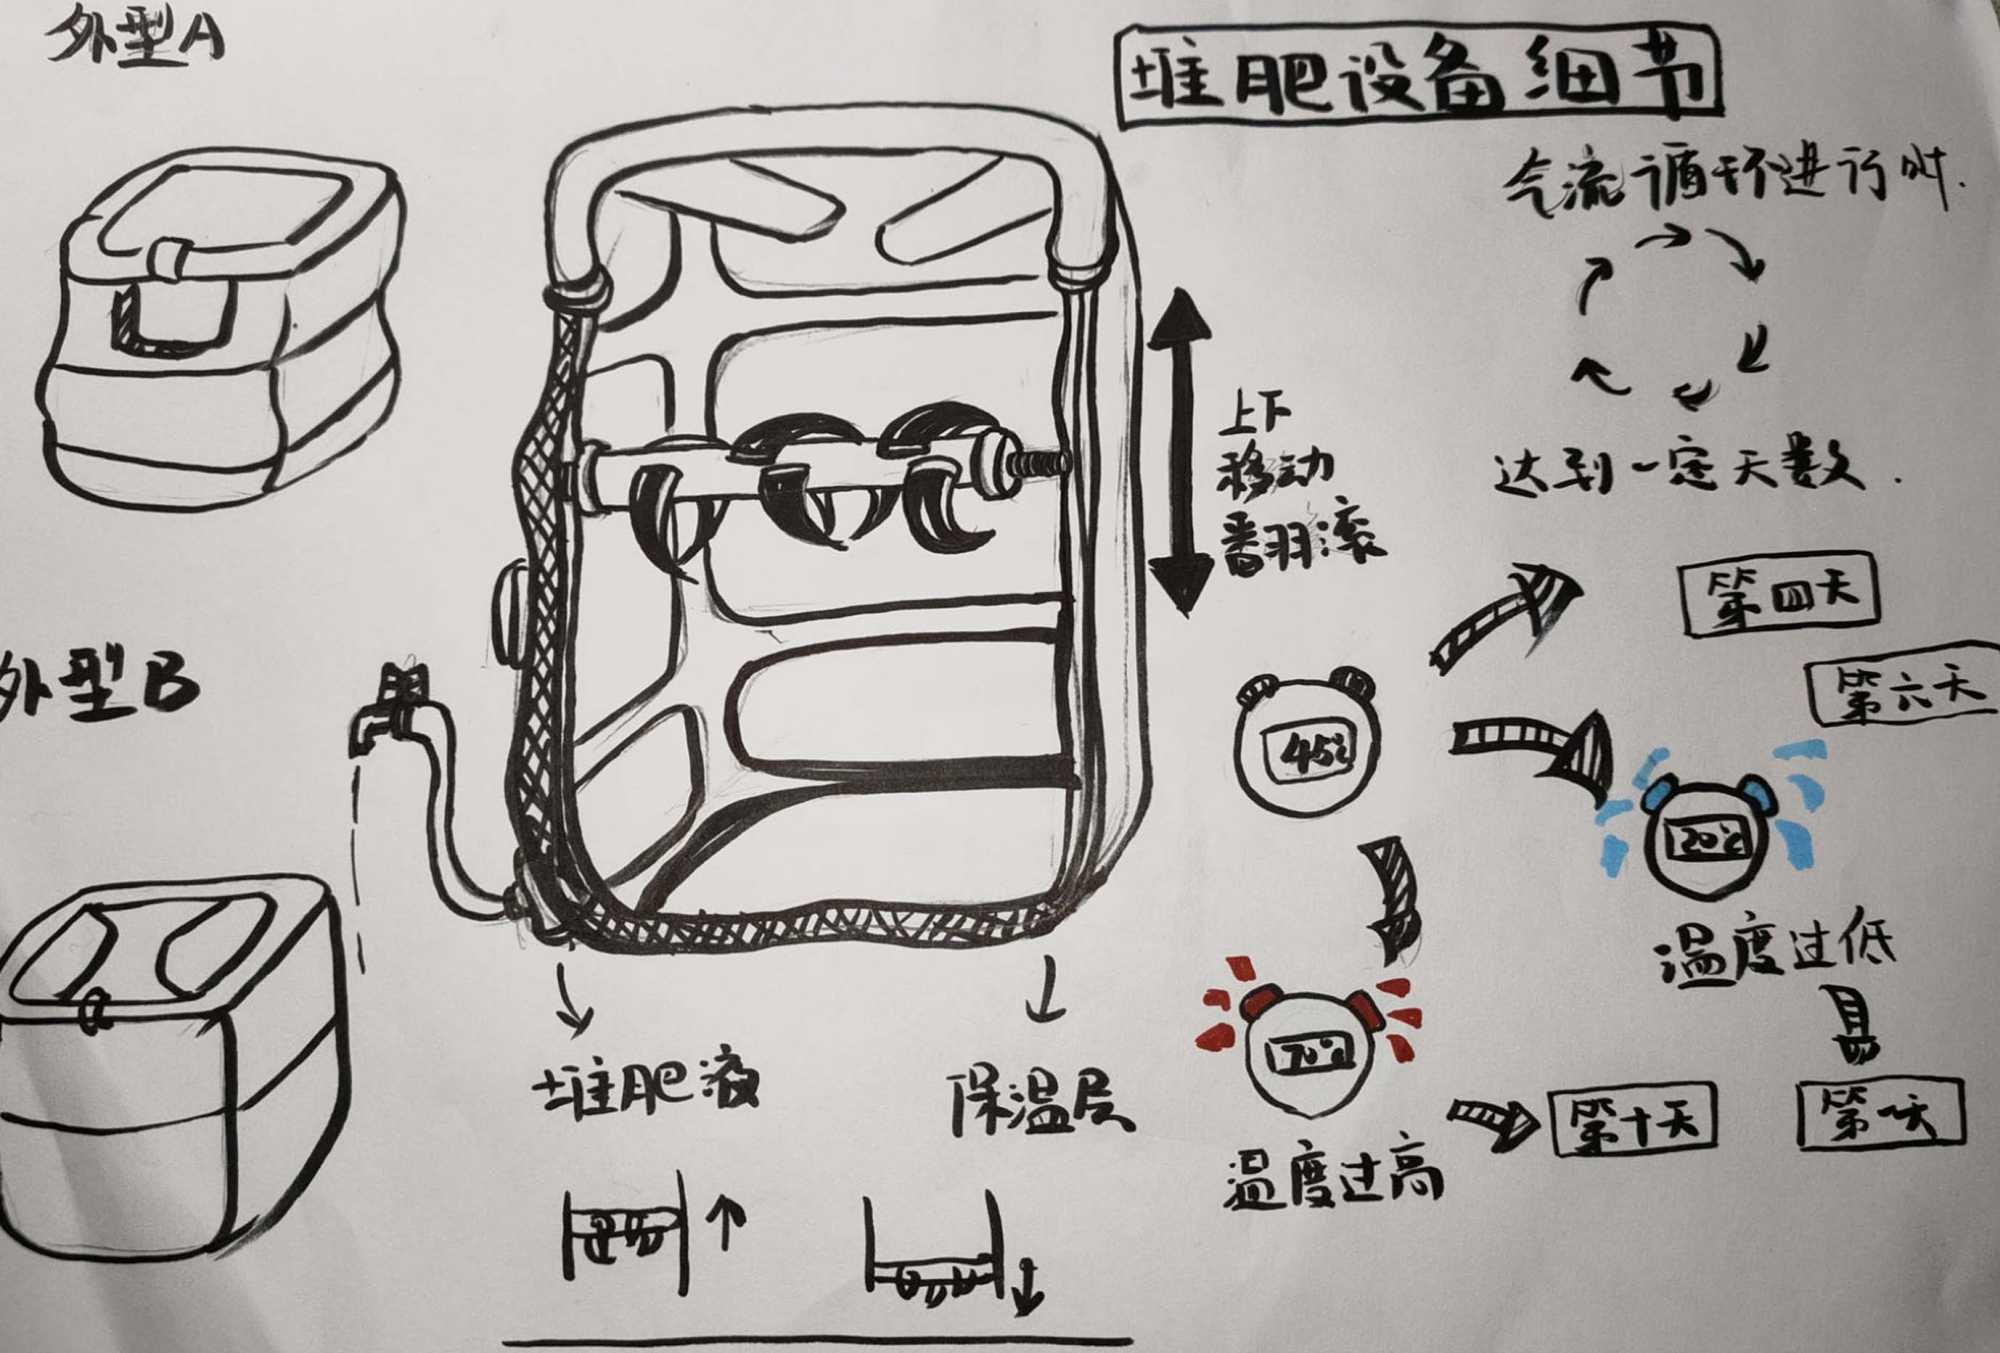 外型A
堆肥设备细节
气流循环进行时.
达到一定天数.
上下
移动
翻滚
第四天
第六天
外型B
45℃
20℃
温度过低
70℃
温度过高
第十天
堆肥液
保温层